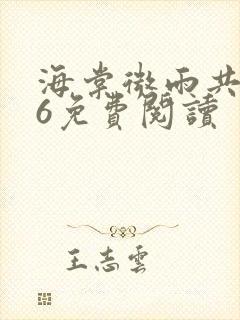 海棠微雨共
6免費閱讀
王志雲